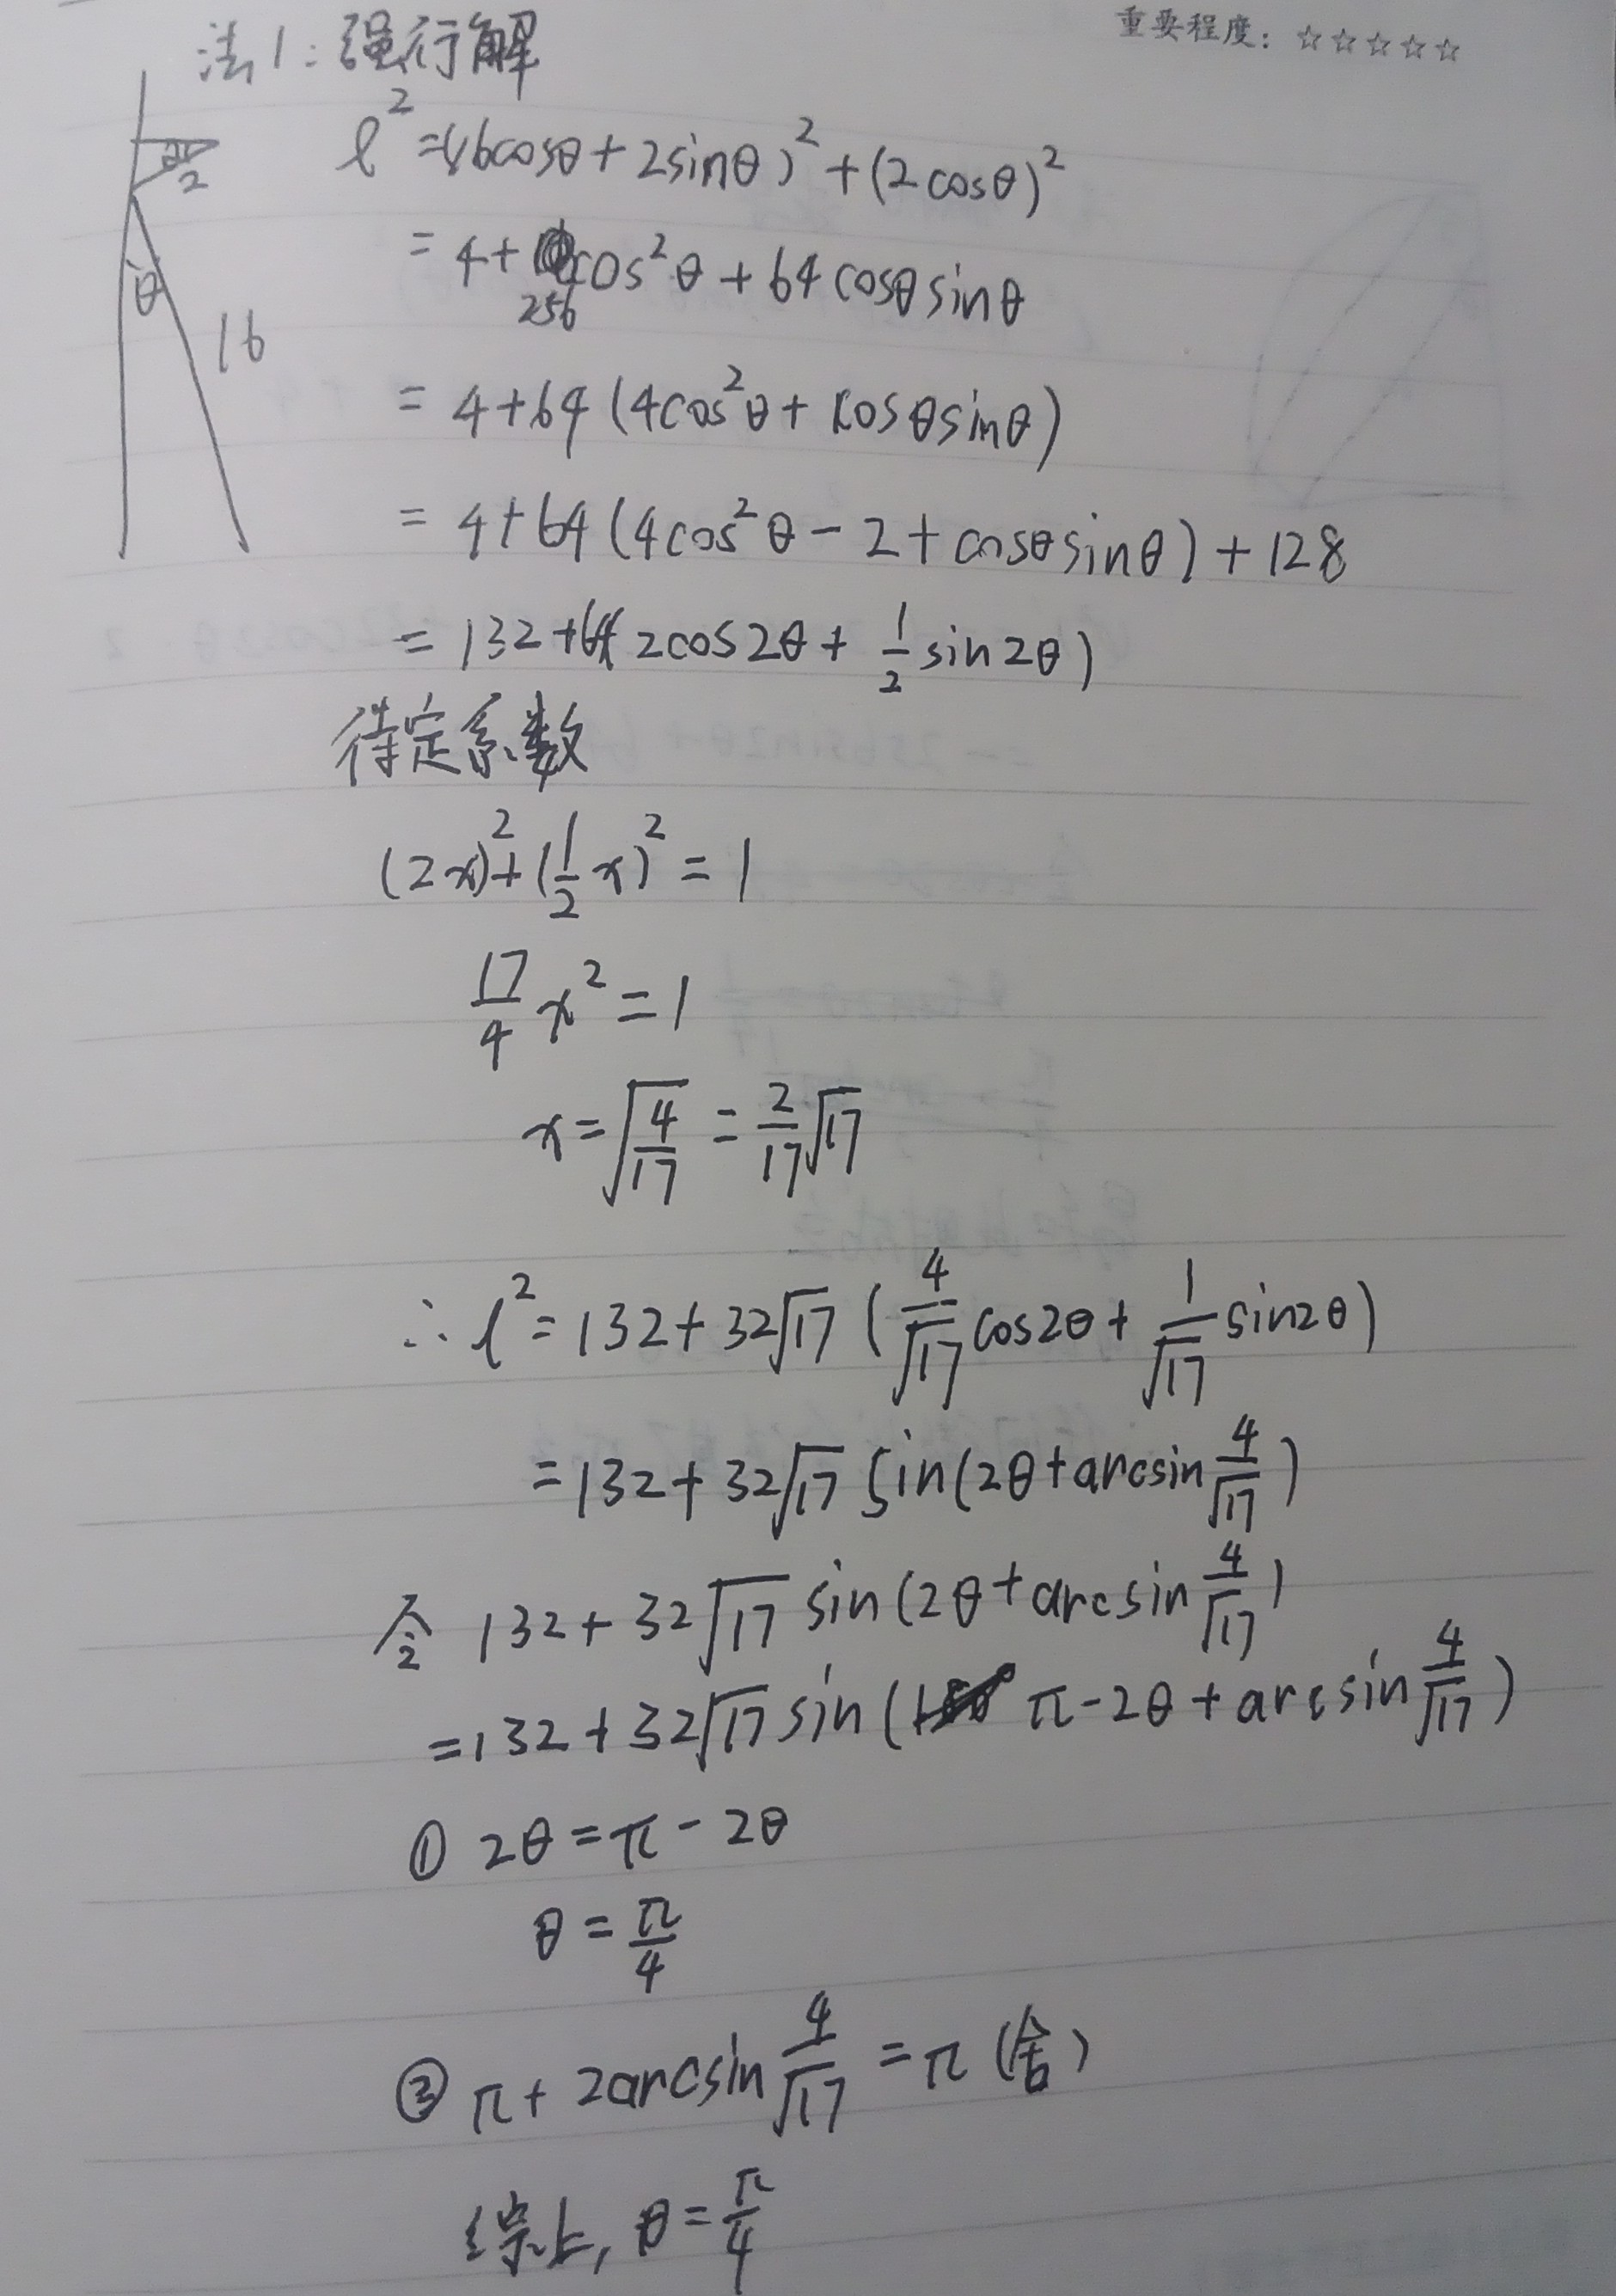 重要程度：☆☆☆☆☆
法1：强行解
2
θ
16
l²=(16cosθ+2sinθ)²+(2cosθ)²
=4+256cos²θ+64cosθsinθ
=4+64(4cos²θ+cosθsinθ)
=4+64(4cos²θ-2+cosθsinθ)+128
=132+64(2cos2θ+1/2 sin2θ)
待定系数
(2x)²+(1/2 x)²=1
17/4 x²=1
x=√(4/17)=2/17 √17
∴l²=132+32√17(4/√17 cos2θ+1/√17 sin2θ)
=132+32√17 sin(2θ+arcsin 4/√17)
令 132+32√17 sin(2θ+arcsin 4/√17)
=132+32√17 sin(π-2θ+arcsin 4/√17)
① 2θ=π-2θ
θ=π/4
② π+2arcsin 4/√17=π(舍)
综上，θ=π/4